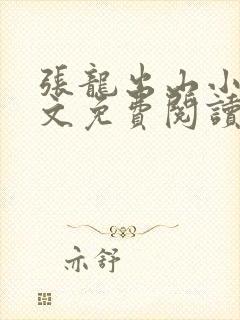 張龍出山小
文免費閱讀
亦舒